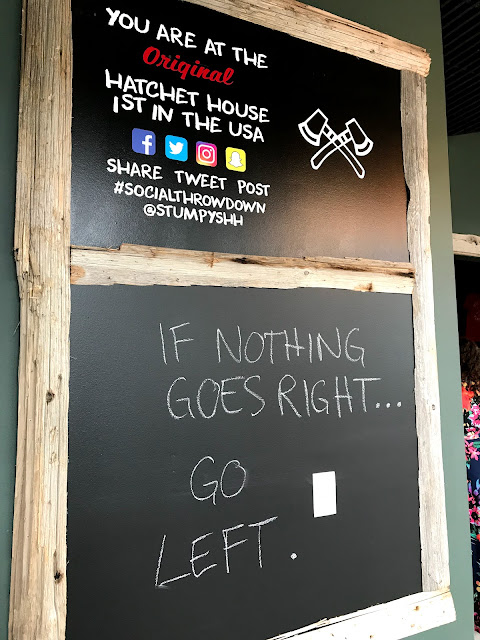 YOU ARE AT THE
Original
HATCHET HOUSE
1ST IN THE USA
SHARE TWEET POST
#SOCIALTHROWDOWN
@STUMPYSHH
IF NOTHING
GOES RIGHT...
GO
LEFT.